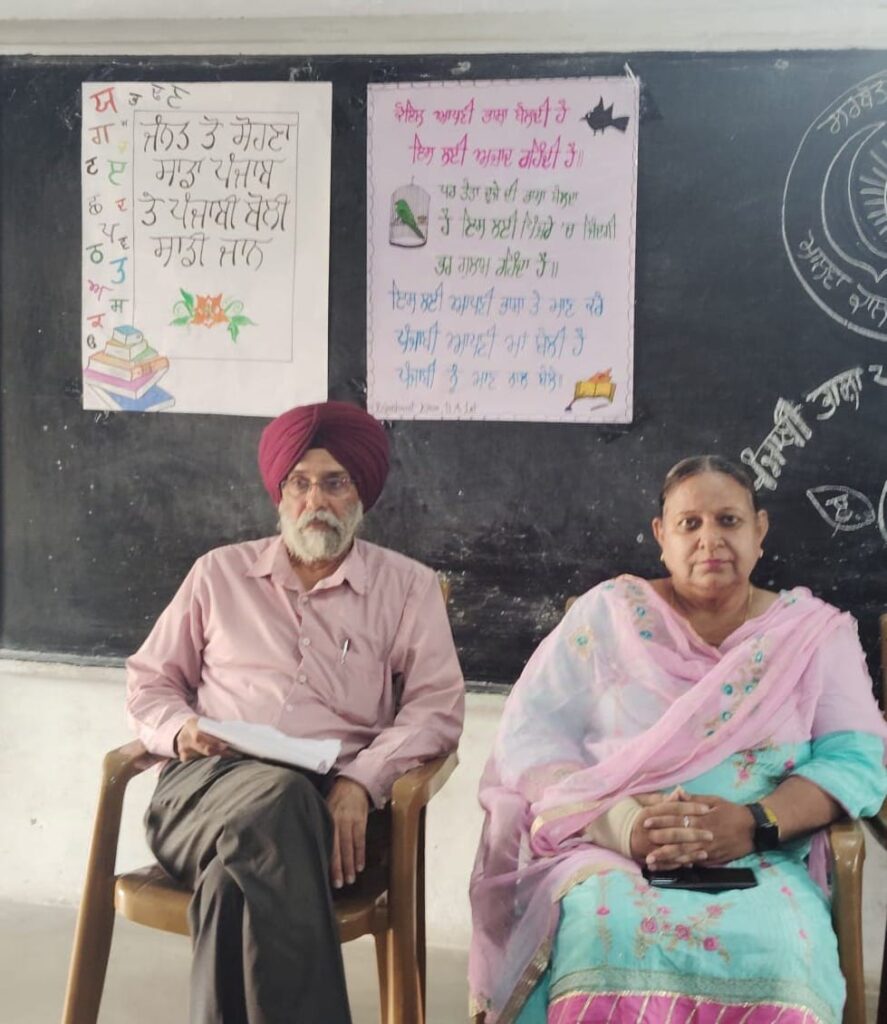 ਜੰਨਤ ਤੋਂ ਸੋਹਣਾ
ਸਾਡਾ ਪੰਜਾਬ
ਤੇ ਪੰਜਾਬੀ ਬੋਲੀ
ਸਾਡੀ ਜਾਨ
ਕੋਇਲ ਆਪਣੀ ਭਾਸ਼ਾ ਬੋਲਦੀ ਹੈ
ਇਸ ਲਈ ਅਜ਼ਾਦ ਰਹਿੰਦੀ ਹੈ॥
ਪਰ ਤੋਤਾ ਦੂਜੇ ਦੀ ਭਾਸ਼ਾ ਬੋਲਦਾ
ਹੈ ਇਸ ਲਈ ਪਿੰਜਰੇ 'ਚ ਜਿੰਦਗੀ
ਭਰ ਗੁਲਾਮ ਰਹਿੰਦਾ ਹੈ॥
ਇਸ ਲਈ ਆਪਣੀ ਭਾਸ਼ਾ ਤੇ ਮਾਣ ਕਰੋ
ਪੰਜਾਬੀ ਆਪਣੀ ਮਾਂ ਬੋਲੀ ਹੈ
ਪੰਜਾਬੀ ਨੂੰ ਮਾਣ ਨਾਲ ਬੋਲੋ।
ਪੰਜਾਬੀ ਭਾਸ਼ਾ